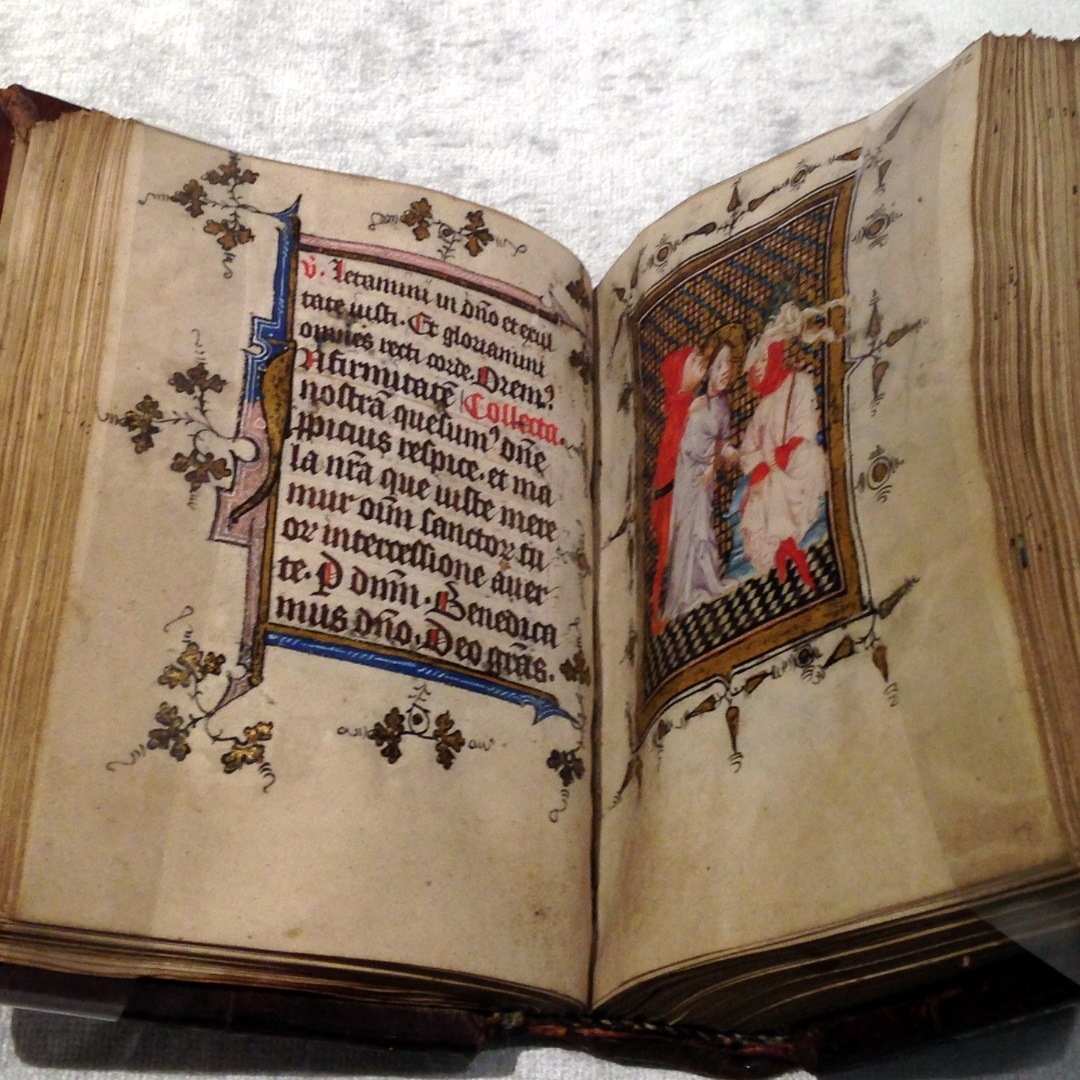 v̄. Letamini in dño et exul
tate iusti. Et gloriamini
omnes recti corde. Orem9.
Nfirmitatē Collecta.
nostrā quesum9 dñe
ppicius respice. et ma
la nr̄a que iuste mere
mur oīm sanctoꝝ tu
or intercessione auer
te. P dnm̄. Benedica
mus dño. Deo gr̄as.